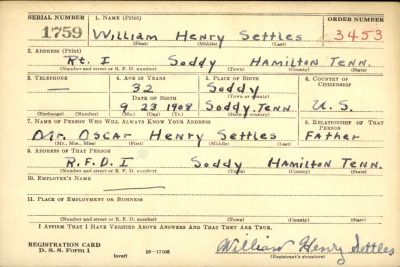 SERIAL NUMBER 1. NAME (Print) ORDER NUMBER
1759 William Henry Settles 3453
(First) (Middle) (Last)
2. ADDRESS (Print)
Rt. I Soddy HAMILTON TENN.
(Number and street or R. F. D. number) (Town) (County) (State)
3. TELEPHONE 4. AGE IN YEARS 5. PLACE OF BIRTH 6. COUNTRY OF CITIZENSHIP
— 32 Soddy
DATE OF BIRTH
9 23 1908 Soddy, Tenn U.S.
7. NAME OF PERSON WHO WILL ALWAYS KNOW YOUR ADDRESS 8. RELATIONSHIP OF THAT PERSON
Mr. Oscar Henry Settles Father
(Mr., Mrs., Miss) (First) (Middle) (Last)
9. ADDRESS OF THAT PERSON
R.F.D. I Soddy HAMILTON TENN.
(Number and street or R. F. D. number) (Town) (County) (State)
10. EMPLOYER'S NAME
11. PLACE OF EMPLOYMENT OR BUSINESS
(Number and street or R. F. D. number) (Town) (County) (State)
I AFFIRM THAT I HAVE VERIFIED ABOVE ANSWERS AND THAT THEY ARE TRUE.
REGISTRATION CARD
D. S. S. Form 1 (over) 16—17105 William Henry Settles
(Registrant's signature)